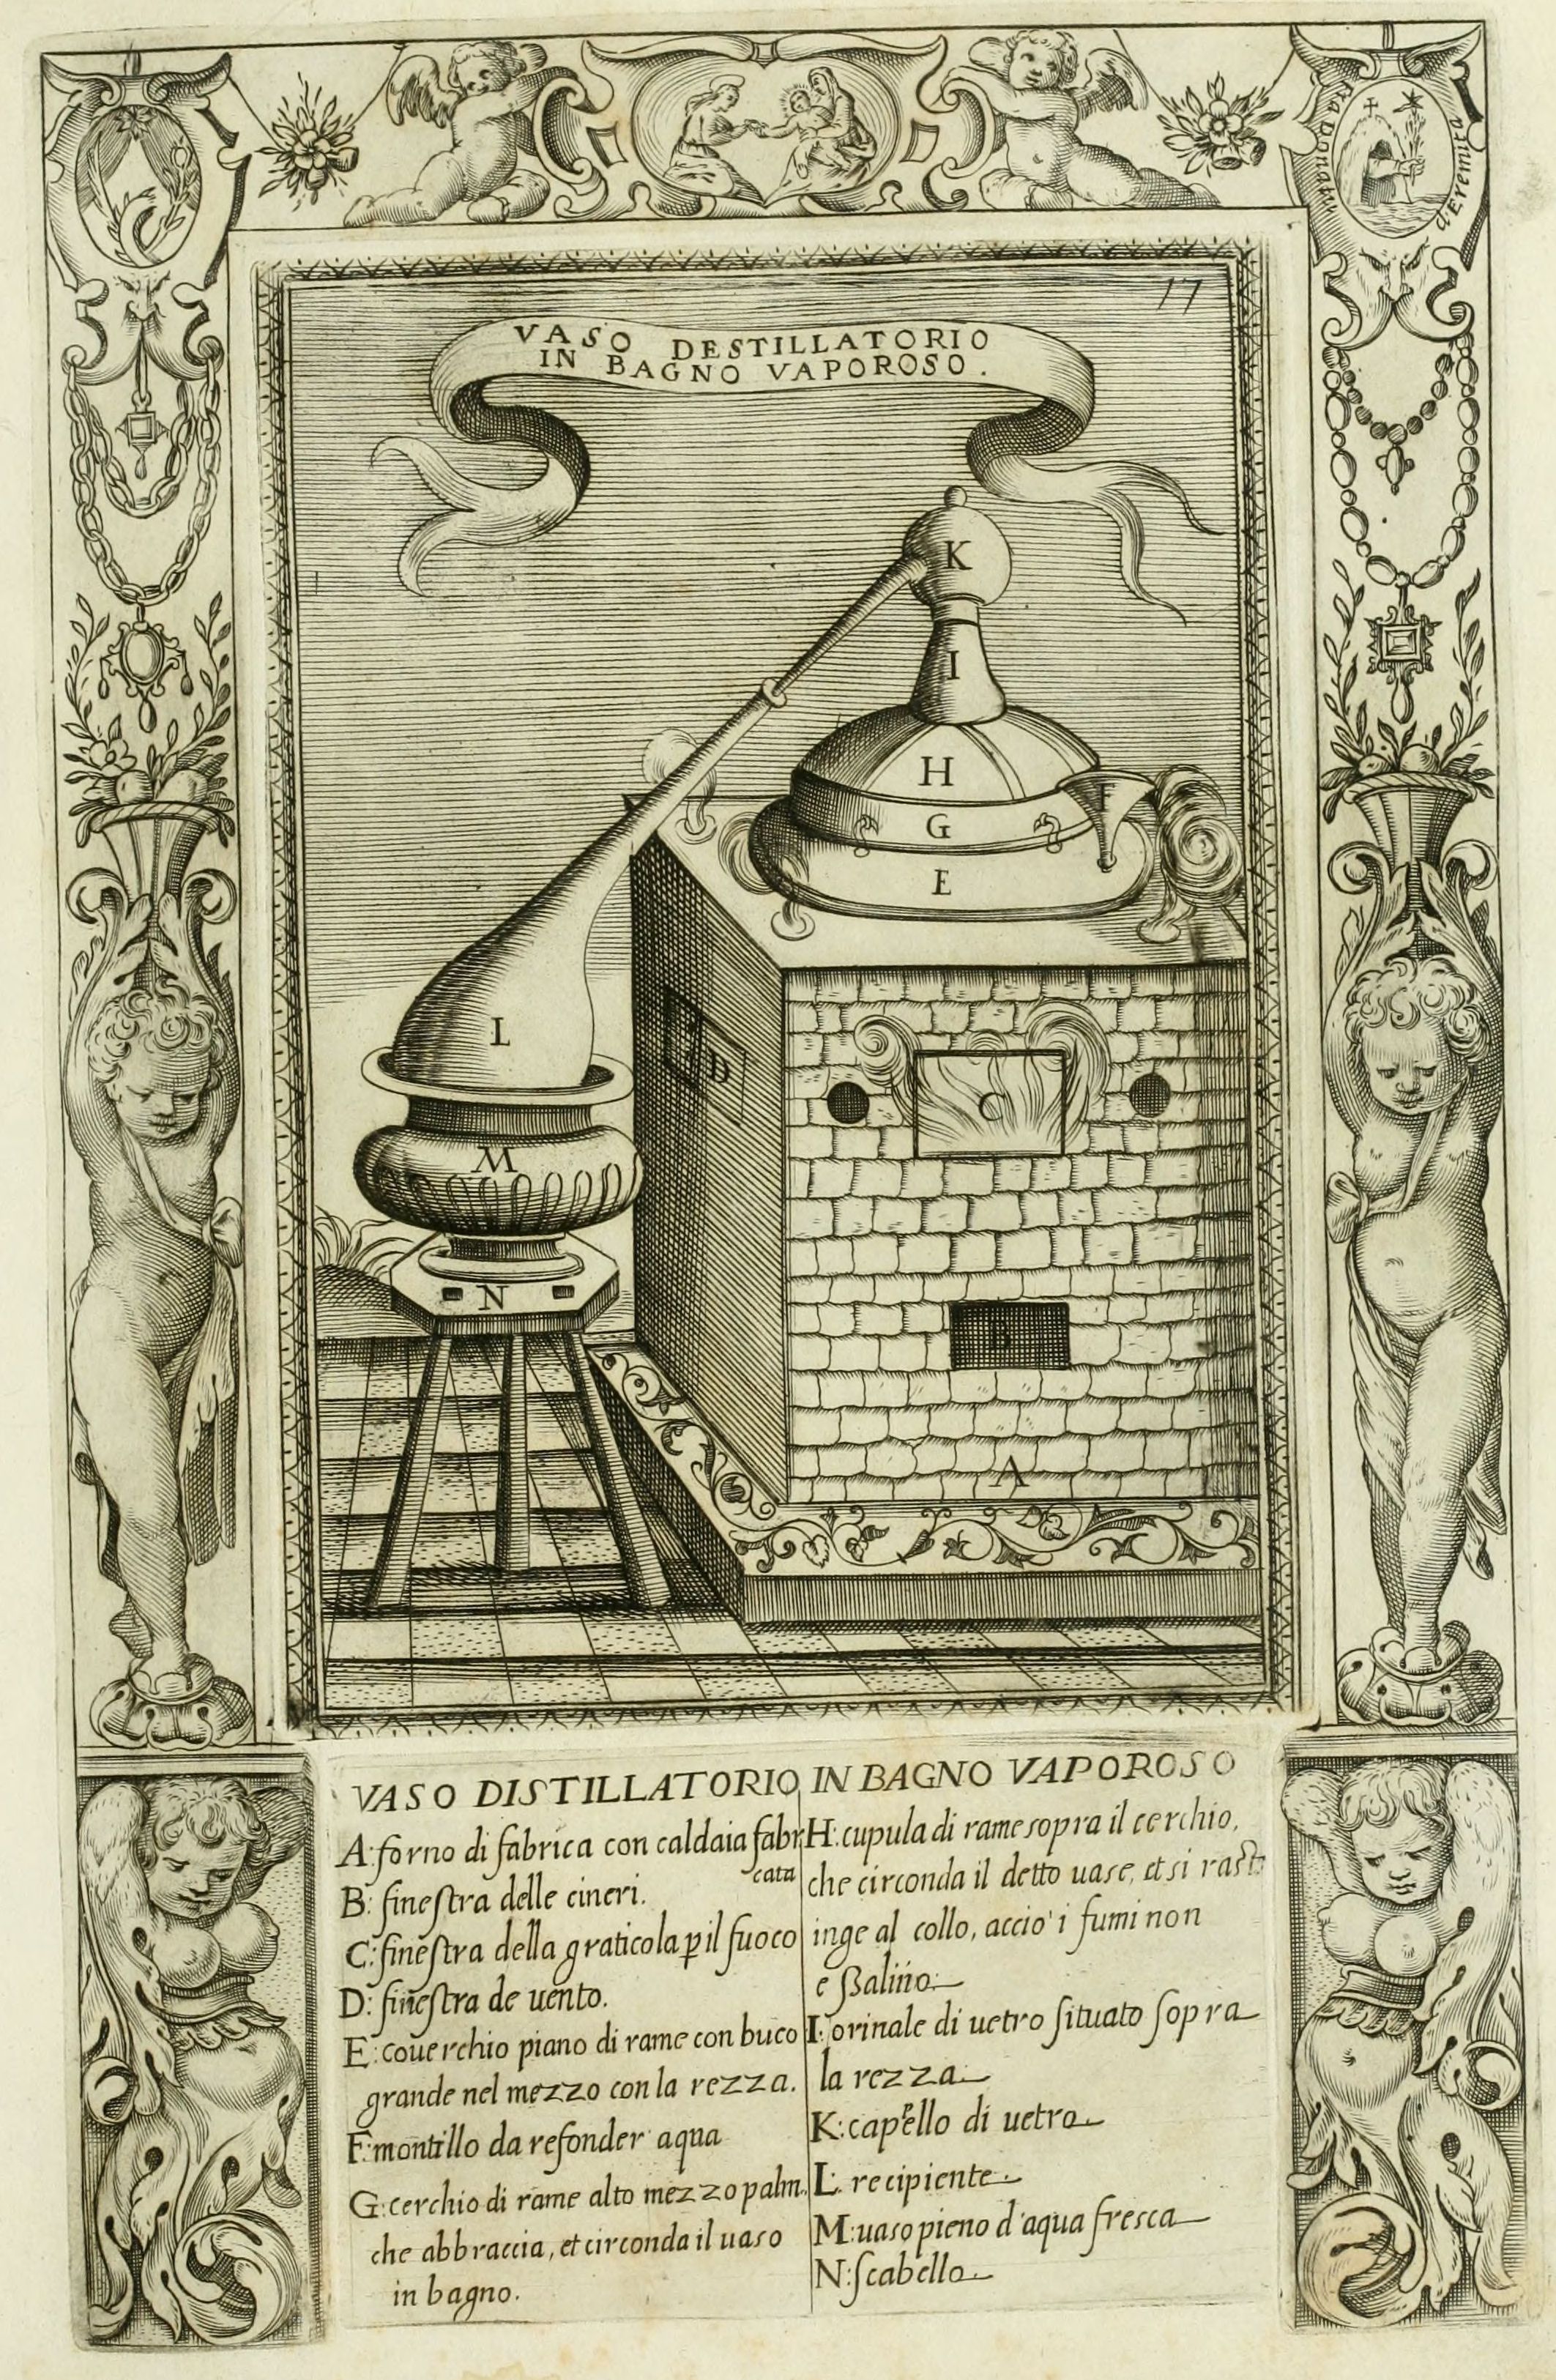 fra Donato
d'Eremita
17
VASO DESTILLATORIO
IN BAGNO VAPOROSO.
K
I
H
F
G
E
L
D
C
M
N
B
A
VASO DISTILLATORIO IN BAGNO VAPOROSO
A: forno di fabrica con caldaia fabr
cata
B: finestra delle cineri.
C: finestra della graticola ꝑ il fuoco
D: finestra de uento.
E: couerchio piano di rame con buco
grande nel mezzo con la rezza.
F: montillo da refonder aqua
G: cerchio di rame alto mezzo palm.
che abbraccia, et circonda il uaso
in bagno.
H: cupula di rame sopra il cerchio,
che circonda il detto uase, et si rast
inge al collo, accio' i fumi non
eßalino.
I: orinale di uetro situato sopra
la rezza.
K: capello di uetro.
L: recipiente.
M: uaso pieno d'aqua fresca
N: scabello.